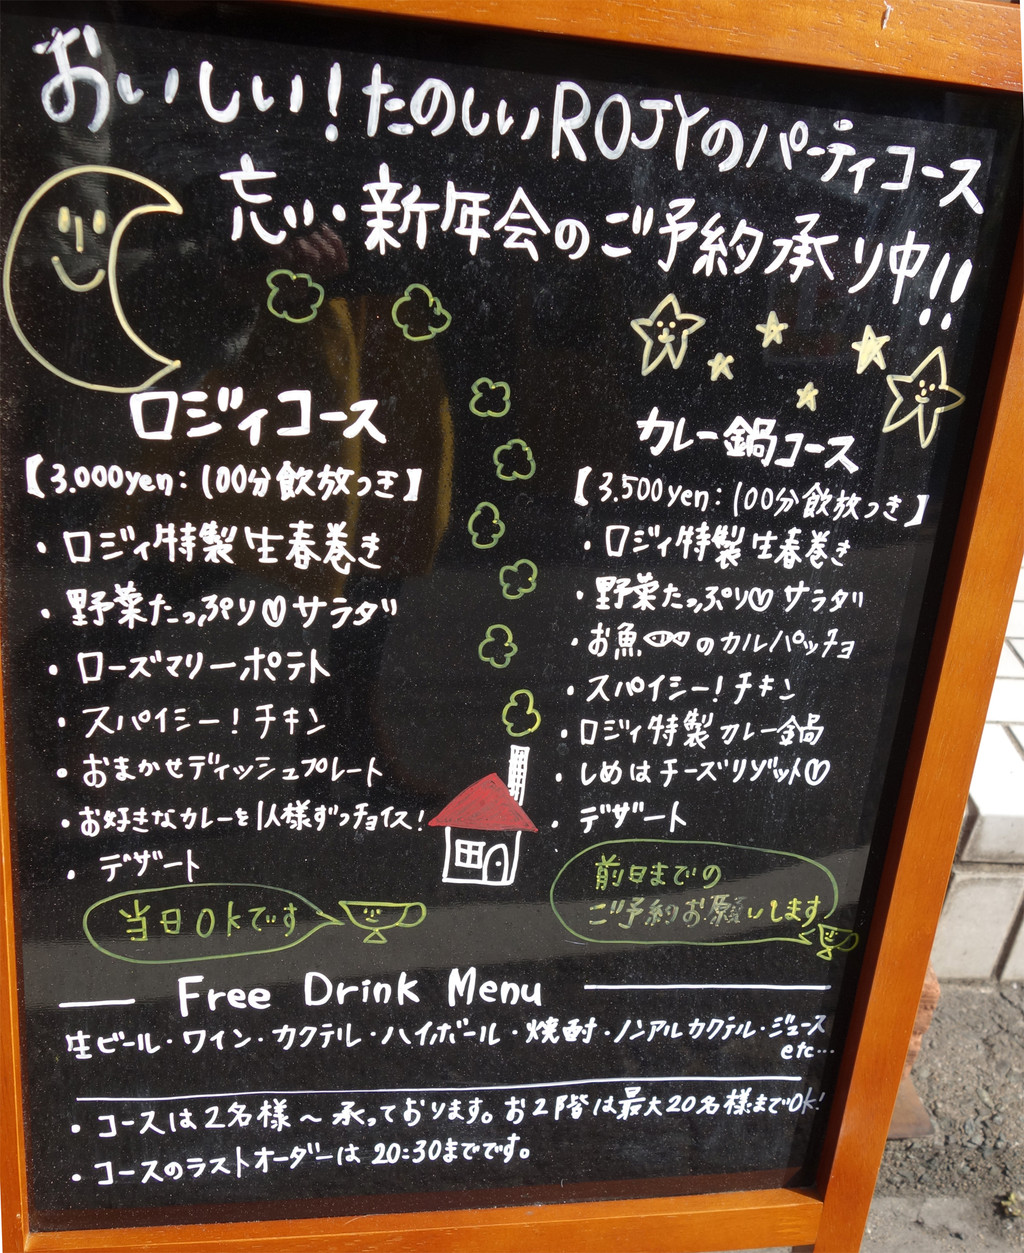 おいしい!たのしいROJYのパーティコース
忘い・新年会のご予約承り中!!
ロジィコース
【3.000yen:100分飲放つき】
・ロジィ特製生春巻き
・野菜たっぷり♡サラダ
・ローズマリーポテト
・スパイシー!チキン
・おまかせディッシュプレート
・お好きなカレーを1人様ずつチョイス!
・デザート
当日OKです
カレー鍋コース
【3.500yen:100分飲放つき】
・ロジィ特製生春巻き
・野菜たっぷり♡サラダ
・お魚のカルパッチョ
・スパイシー!チキン
・ロジィ特製カレー鍋
・しめはチーズリゾット♡
・デザート
前日までの
ご予約お願いします
Free Drink Menu
生ビール・ワイン・カクテル・ハイボール・焼酎・ノンアルカクテル・ジュース
etc…
・コースは2名様～承っております。お2階は最大20名様までOK!
・コースのラストオーダーは20:30までです。